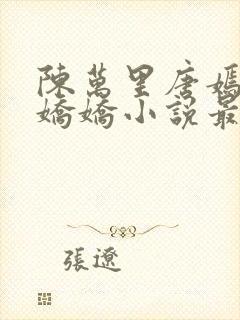 陳萬里唐嫣
嬌嬌小說最
張遼